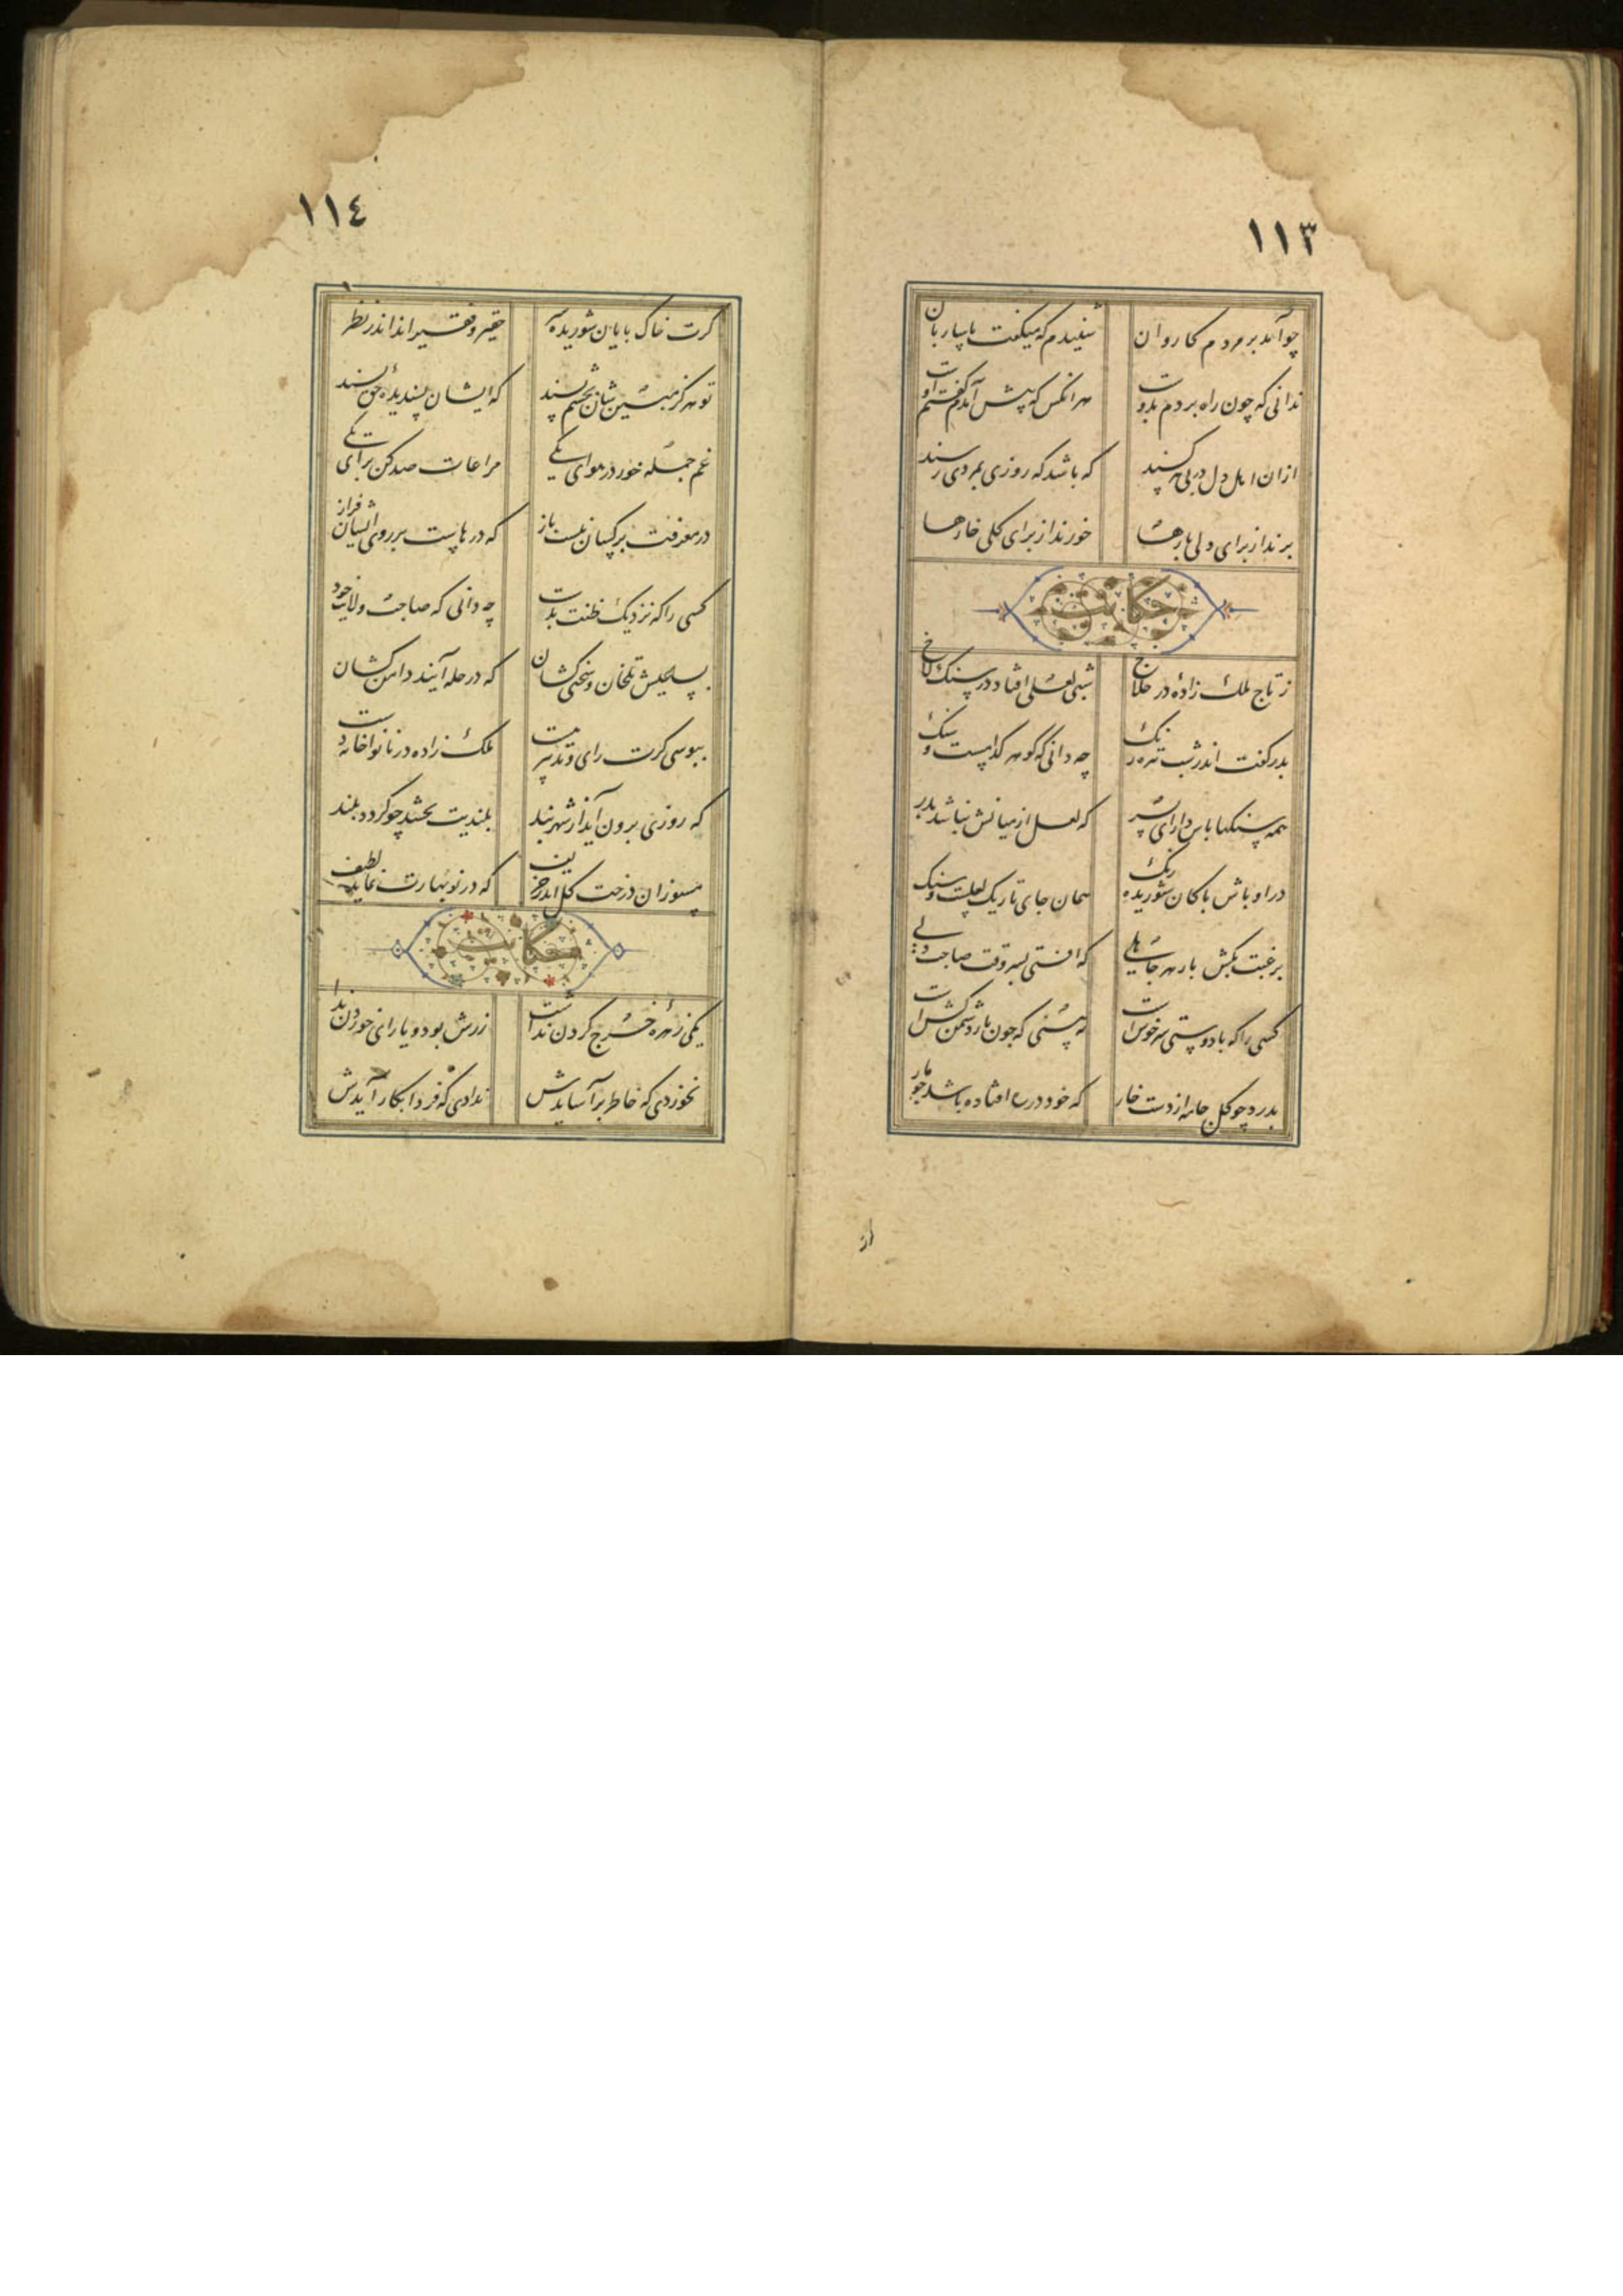 ١١٣
چو آمد بر مردم کاروان
شنیدم که میگفت با ساربان
ندانی که چون راه بردم بدوست
هر انکس که پیش آمدم گفتم اوست
ازان اهل دل در پی هر کسند
که باشد که روزی بمردی رسند
برند از برای دلی بارها
خورند از برای کلی خارها
حکایت
ز تاج ملک زادهٔ در ملاخ
شبی لعلی افتاد در سنک لاخ
پدر گفت اندر شب تیره رنک
چه دانی که گوهر کدامست و سنک
همه سنکها پاس دار ای پسر
که لعل از میانش نباشد بدر
در اوباش پاکان شوریده رنک
همان جای تاریک لعلست و سنک
برغبت بکش بار هر جاهلی
که افتی بسر وقت صاحب دلی
کسی را که با دوستی سر خوش است
نه بینی که چون بار دشمن کش است
بدرد چو کل جامه از دست خار
که خود در افتاده باشد چو مار
از
١١٤
کرت خاک پایان شوریده
حقیر و فقیر اند اندر نظر
تو هرکز مبین شان بچشم پسند
که ایشان پسندیدهٔ حق بسند
غم جمله خور در هوای یکی
مراعات صد کن برای یکی
در معرفت بر کسانیست باز
که درهاست بر روی ایشان فراز
کسی را که نزدیک ظنت بدست
چه دانی که صاحب ولایت خود
بسا تلخ عیشان و سختی کشان
که در حله آیند دامن کشان
ببوسی کرت رای و تدبیر هست
ملک زاده در نواخانه دست
که روزی برون آید از شهر بند
بلندیت بخشد چو کردد بلند
مسوزان درخت کل اندر خریف
که در نوبهارت نماید لطیف
حکایت
یکی زهرهٔ خرج کردن نداشت
زرش بود و یارای خوردن نداشت
نخوردی که خاطر بر آسایدش
ندادی که فردا بکار آیدش